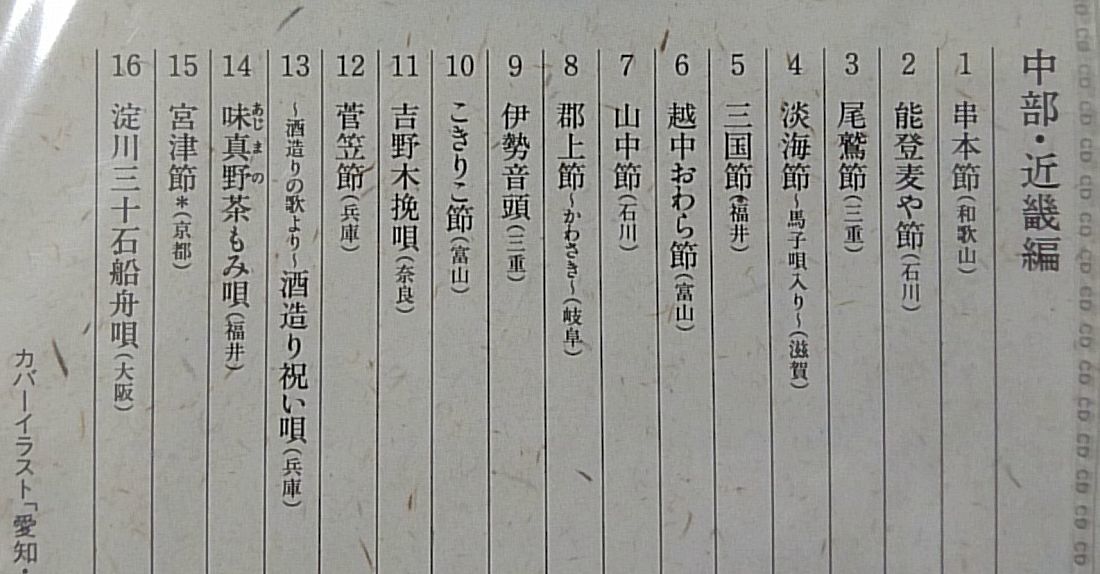 中部・近畿編
1 串本節(和歌山)
2 能登麦や節(石川)
3 尾鷲節(三重)
4 淡海節~馬子唄入り~(滋賀)
5 三国節(福井)
6 越中おわら節(富山)
7 山中節(石川)
8 郡上節~かわさき~(岐阜)
9 伊勢音頭(三重)
10 こきりこ節(富山)
11 吉野木挽唄(奈良)
12 菅笠節(兵庫)
13 ~酒造りの歌より~酒造り祝い唄(兵庫)
14 味真野茶もみ唄(福井)
あじまの
15 宮津節*(京都)
16 淀川三十石船舟唄(大阪)
カバーイラスト「愛知・